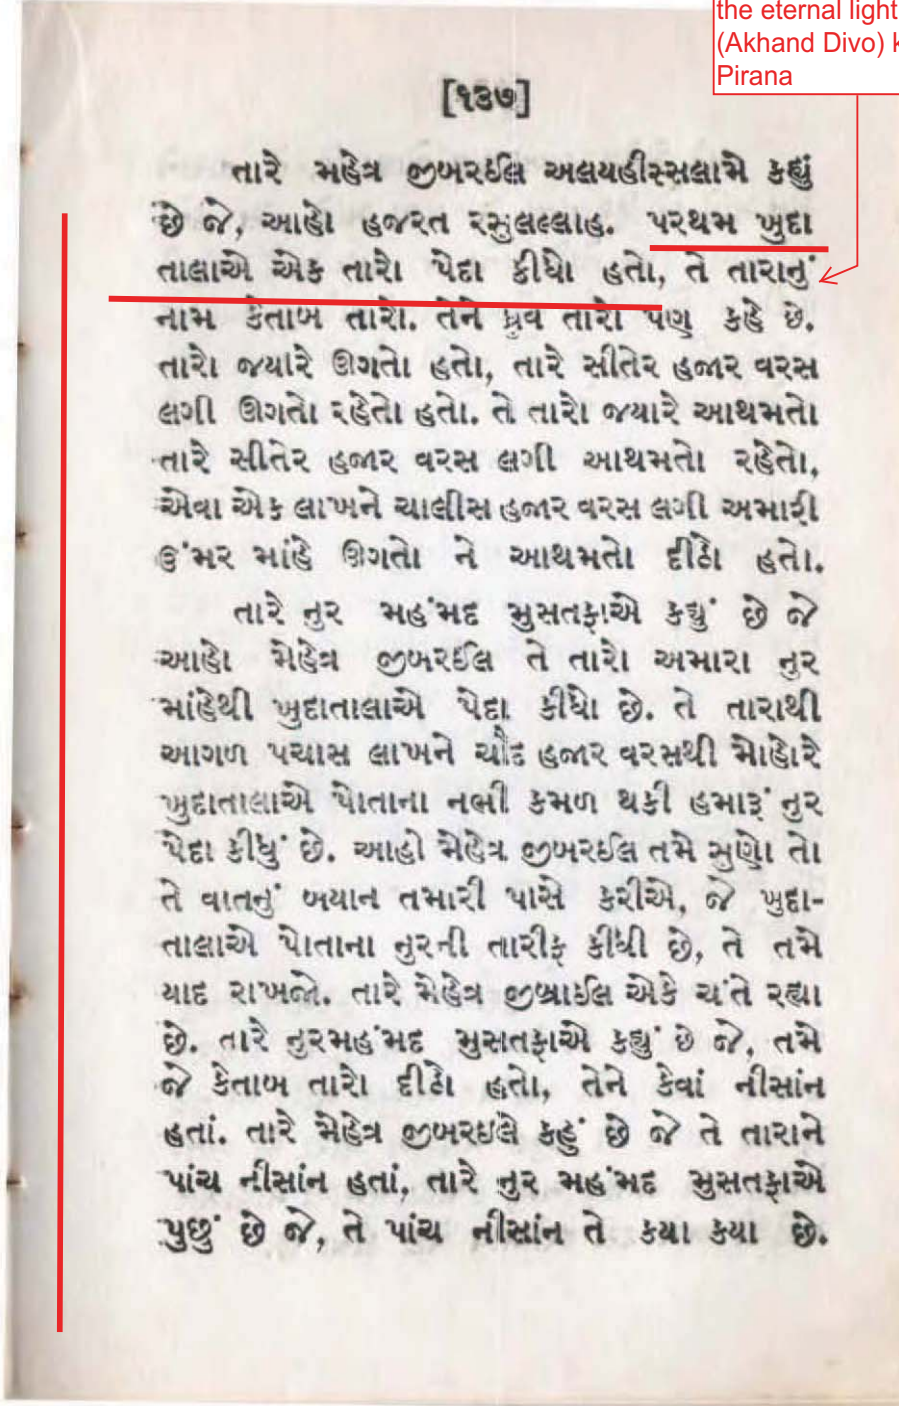 the eternal light
(Akhand Divo) k
Pirana
[૧૩૭]
તારે મહેત્ર જીબરઈલ અલયહીસ્સલામે કહ્યું
છે જે, આહો હજરત રસુલલ્લાહ. પરથમ ખુદા
તાલાએ એક તારો પેદા કીધો હતો, તે તારાનું
નામ કેતાબ તારો. તેને ધ્રુવ તારો પણ કહે છે.
તારો જયારે ઊગતો હતો, તારે સીતેર હજાર વરસ
લગી ઊગતો રહેતો હતો. તે તારો જયારે આથમતો
તારે સીતેર હજાર વરસ લગી આથમતો રહેતો,
એવા એક લાખને ચાલીસ હજાર વરસ લગી અમારી
ઉંમર માંહે ઊગતો ને આથમતો દીઠો હતો.
તારે નુર મહંમદ મુસતફાએ કહ્યું છે જે
આહો મેહેત્ર જીબરઈલ તે તારો અમારા નુર
માંહેથી ખુદાતાલાએ પેદા કીધો છે. તે તારાથી
આગળ પચાસ લાખને ચૌદ હજાર વરસથી મોહોરે
ખુદાતાલાએ પોતાના નભી કમળ થકી હમારૂં નુર
પેદા કીધું છે. આહો મેહેત્ર જીબરઈલ તમે સુણો તો
તે વાતનું બયાન તમારી પાસે કરીએ, જે ખુદા-
તાલાએ પોતાના નુરની તારીફ કીધી છે, તે તમે
યાદ રાખજો. તારે મેહેત્ર જીબ્રાઈલ એકે ચંતે રહ્યા
છે. તારે નુરમહંમદ મુસતફાએ કહ્યું છે જે, તમે
જે કેતાબ તારો દીઠો હતો, તેને કેવાં નીસાંન
હતાં. તારે મેહેત્ર જીબરઇલે કહું છે જે તે તારાને
પાંચ નીસાંન હતાં, તારે નુર મહંમદ મુસતફાએ
પુછું છે જે, તે પાંચ નીસાંન તે કયા કયા છે.